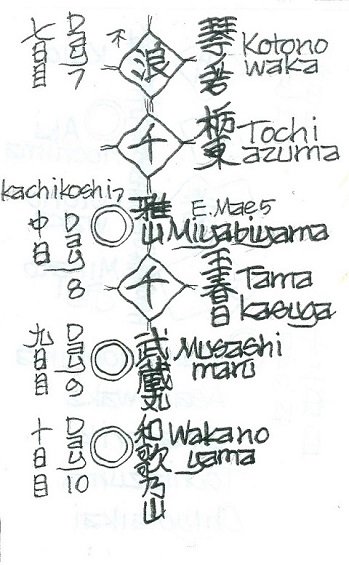 七日目 Day 7
不
浪
琴若
Kotono
waka
千
栃東
Tochi
azuma
kachikoshi 7
中日 Day 8
雅山
E. Mae.5
Miyabiyama
千
玉春日
Tama
kasuga
九日目 Day 9
武蔵丸
Musashi
maru
十日目 Day 10
和歌乃山
Wakano
yama